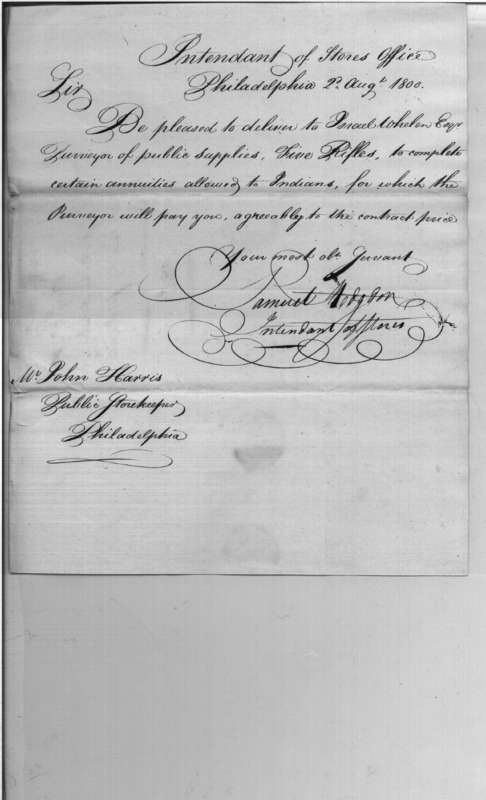 Intendant of Stores Office
Philadelphia 2d. Augt. 1800.
Sir
Be pleased to deliver to Israel Whelen Esqr
Purveyor of public supplies, Five Rifles, to complete
certain annuities allowed to Indians, for which the
Purveyor will pay you, agreeably to the contract price
Your most obt. Servant
Samuel Hodgdon
Intendant of Stores
Mr. John Harris
Public Storekeeper
Philadelphia